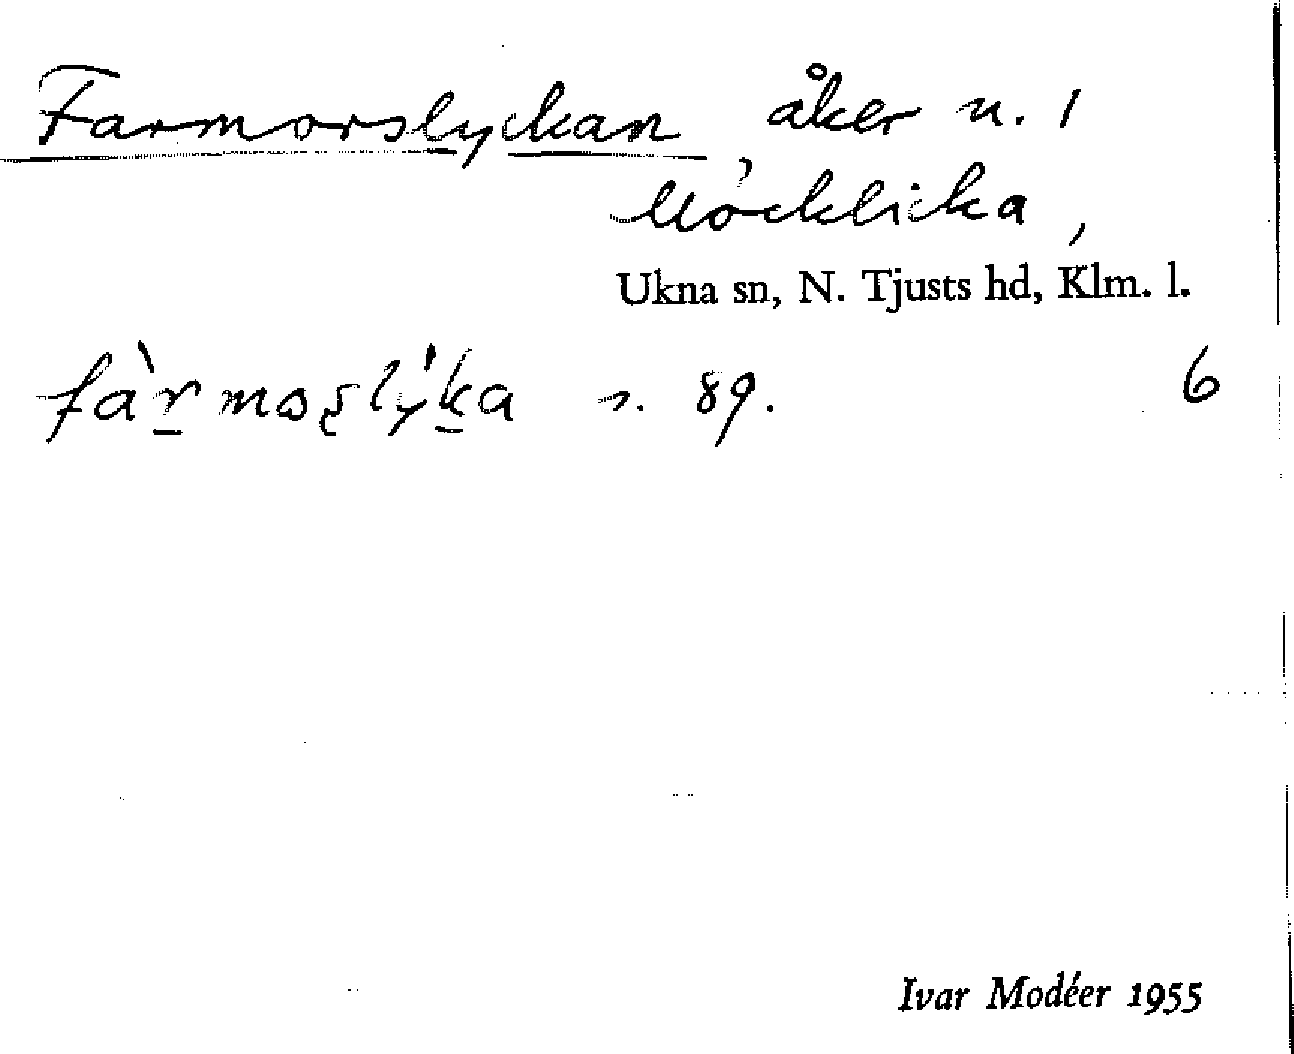 Farmorslyckan åker n. 1
Möcklicka,
Ukna sn, N. Tjusts hd, Klm. l.
fàrmoʂlýka s. 89. 6
Ivar Modéer 1955